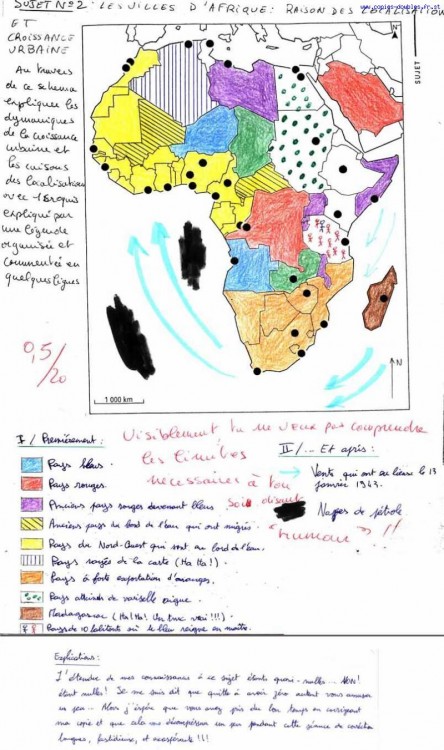 www.copies-doubles.fr.st
SUJET N°2 : LES VILLES D'AFRIQUE : RAISON DES LOCALISATION
ET
CROISSANCE
URBAINE
SUJET
Au travers
de ce schema
expliquer les
dynamiques
de la croissance
urbaine et
les raisons
des localisations
avec 1 croquis
expliqué par
une légende
organisée et
commentée en
quelques lignes
0,5/20
N
N
1 000 km
Visiblement tu ne veux pas comprendre
les limites
nécessaires à ton
soit disant
"humour" !!
I / Premièrement :
Pays bleus.
Pays rouges.
Anciens pays rouges devenant bleus.
Anciens pays du bord de l'eau qui ont migrés.
Pays du Nord-Ouest qui sont au bord de l'eau.
Pays rayés de la carte (Ha Ha!).
Pays à forte exportation d'oranges.
Pays atteinds de varicelle aigue.
Madagascar (Ha! Ha! Un truc vrai !!!).
Pays de 10 habitants où le bleu reigne en maître.
II / ... Et après :
Vents qui ont eu lieux le 13
janvier 1943.
Napes de pétrole
Explications :
L'étendue de mes connaissances à ce sujet étants quasi-nulles... NON!
étant nulles! Je me suis dit que quitte à avoir zéro autant vous amuser
un peu... Alors j'éspère que vous aurez pris du bon temps en corrigeant
ma copie et que cela vous décompressera un peu pendant cette séance de corréction
longues, fastidieuse, et exaspérante !!!